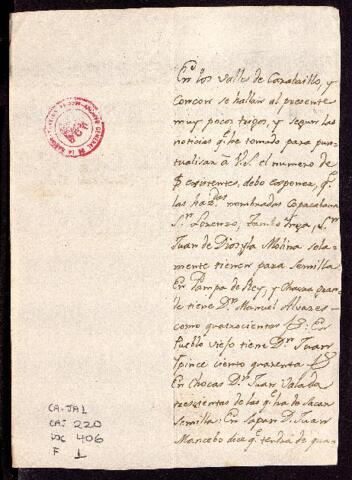 En los valles de Carabaillo, y
Concon se hallan al presente
muy pocos trigos, y segun las
noticias q.e he tomado para pun-
tualisar à V.S. el numero de
existentes, debo exponer, q.e
las haz.das nombradas Copacabana
S.n Lorenzo, Tambo Inga, S.n
Juan de Dios, y la Molina sola-
mente tienen para semilla
En Pampa de Rey, y Chacra gran-
de tiene D.n Manuel Alvares
como quatrocientas: En
Pueblo viejo tiene D.n Juan
Ipince ciento quarenta
En Chocas D.n Juan Salada
tresientas de las q.e ha de sacar
semilla: En Capan D. Juan
Mancebo dice q.e tendrá de qua-
CA-JA1
CAJ 220
DOC 406
F 1